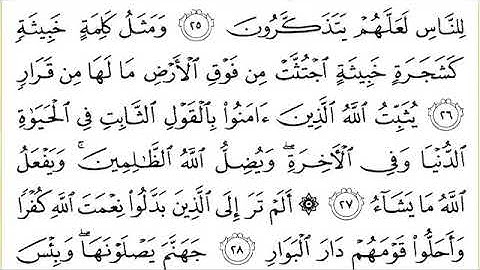 لِلنَّاسِ لَعَلَّهُمْ يَتَذَكَّرُونَ ٢٥ وَمَثَلُ كَلِمَةٍ خَبِيثَةٍ
كَشَجَرَةٍ خَبِيثَةٍ ٱجْتُثَّتْ مِن فَوْقِ ٱلْأَرْضِ مَا لَهَا مِن قَرَارٍ
٢٦ يُثَبِّتُ ٱللَّهُ ٱلَّذِينَ ءَامَنُوا۟ بِٱلْقَوْلِ ٱلثَّابِتِ فِى ٱلْحَيَوٰةِ
ٱلدُّنْيَا وَفِى ٱلْأَخِرَةِ ۖ وَيُضِلُّ ٱللَّهُ ٱلظَّٰلِمِينَ ۚ وَيَفْعَلُ
ٱللَّهُ مَا يَشَآءُ ٢٧ ۞ أَلَمْ تَرَ إِلَى ٱلَّذِينَ بَدَّلُوا۟ نِعْمَتَ ٱللَّهِ كُفْرًا
وَأَحَلُّوا۟ قَوْمَهُمْ دَارَ ٱلْبَوَارِ ٢٨ جَهَنَّمَ يَصْلَوْنَهَا ۖ وَبِئْسَ